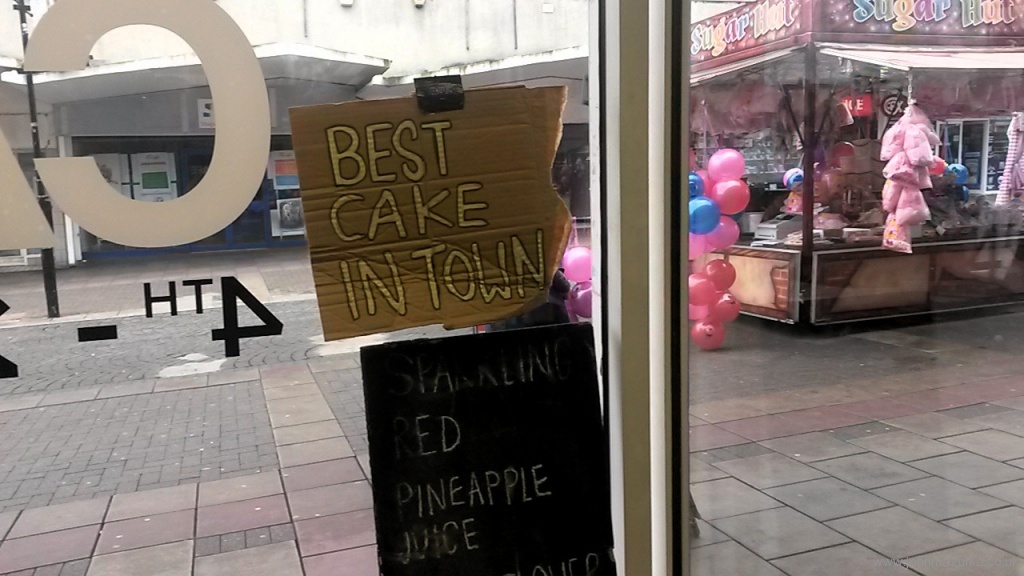 Sugar Hut
Sugar Hut
BEST
CAKE
IN TOWN
4TH -
SPARKLING
RED
PINEAPPLE
JUICE